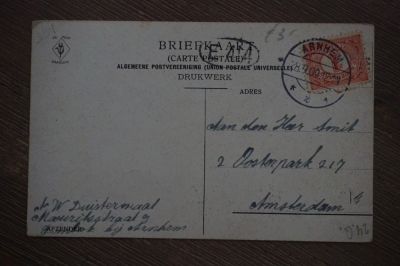 BRIEFKAART
(CARTE POSTALE)
ALGEMEENE POSTVEREENIGING (UNION POSTALE UNIVERSELLE)
DRUKWERK
ARNHEM
ADRES
Aan den Heer Smit
2 Oosterpark 217
Amsterdam
N W Duistermaat
Mauritsstraat 7
bij Arnhem
AFZENDER